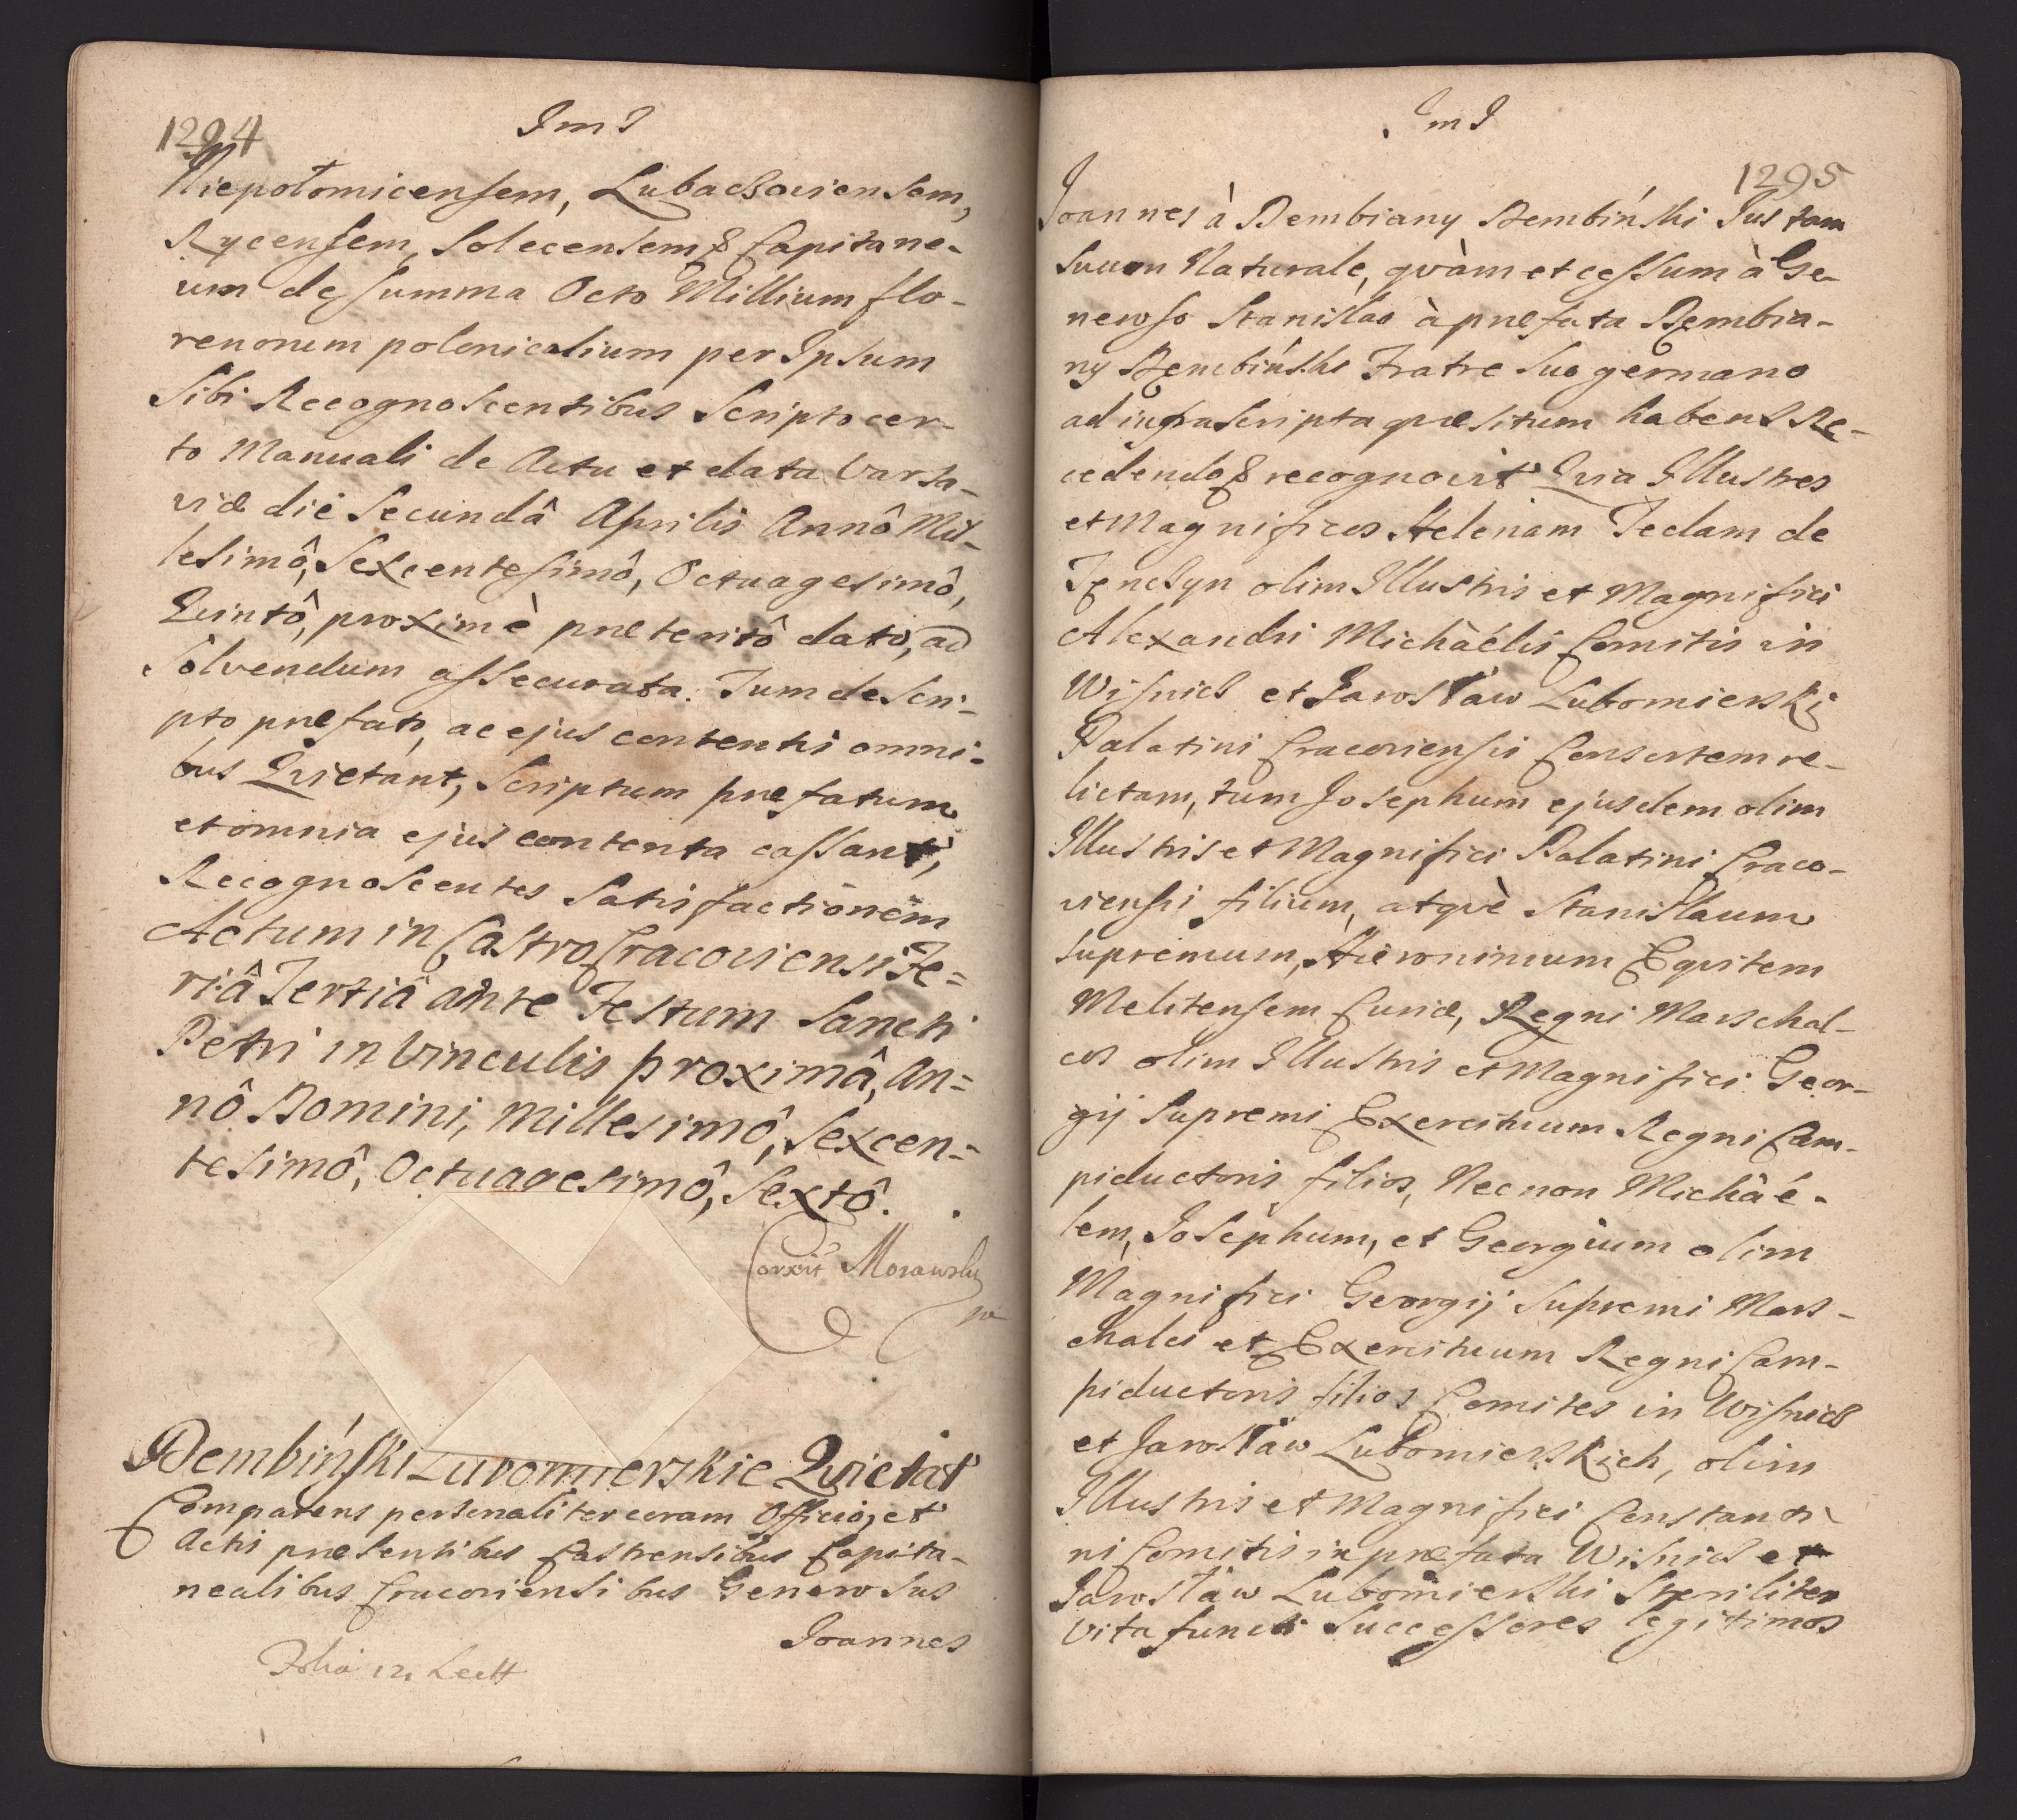 1294
ImI
Niepołomicensem, Lubaczoviensem,
Rycensem, Solecensem & Capitane-
um de summa Octo Millium flo-
renorum polonicalium per Ipsum
Sibi Recognoscentibus Scripto cer-
to Manuali de Actu et data Varsa-
viæ die Secundâ Aprilis Annô Mil-
lesimô, Sexcentesimô, Octuagesimô,
Quintô, proximè præteritô dato, ad
Solvendum assecurata. Tum de Scri-
pto præfato, ac ejus contentis omni-
bus Quietant, Scriptum præfatum
et omnia ejus contenta cassant,
Recognoscentes Satisfactionem
Actum in Castro Cracoviensi Fe=
riâ Tertiâ ante Festum Sancti
Petri in Vinculis proximâ, An=
nô Domini, Millesimô, Sexcen=
tesimô, Octuagesimô, Sextô.
Corxit Morawski
Dembiński Lubomierskie Quietat
Comparens personaliter coram Officio, et
Actis præsentibus Castrensibus Capita-
nealibus Cracoviensibus Generosus
Joannes
ImI
1295
Joannes à Dembiany Dembiński Jus tam
Suum Naturale, qvàm et cessum à Ge-
neroso Stanislao à præfata Dembia-
ny Dembiński Fratre Suo germano
ad infrascripta quæsitum habens Re-
cedendo & recognovit Quia Illustres
et Magnificos Helenam Teclam de
Tenczyn olim Illustris et Magnifici
Alexandri Michàélis Comitis in
Wisnicz et Jarosław Lubomierski
Palatini Cracoviensis Consortem re-
lictam, tum Josephum ejusdem olim
Illustris et Magnifici Palatini Craco-
viensis filium, atqvè Stanislaum
Supremum, Hieronimum Eqvitem
Melitensem Curiæ, Regni Marschal-
cos olim Illustris et Magnifici Geor-
gij Supremi Exercituum Regni Cam-
piductoris filios, Necnon Michâé-
lem, Josephum, et Georgium olim
Magnifici Georgij Supremi Mars-
chalci et Exercituum Regni Cam-
piductoris filios Comites in Wisnicz
et Jarosław Lubomierskich, olim
Illustris et Magnifici Constanti-
ni Comitis in præfata Wisnicz et
Jarosław Lubomierski Steriliter
Vita functi Successores legitimos